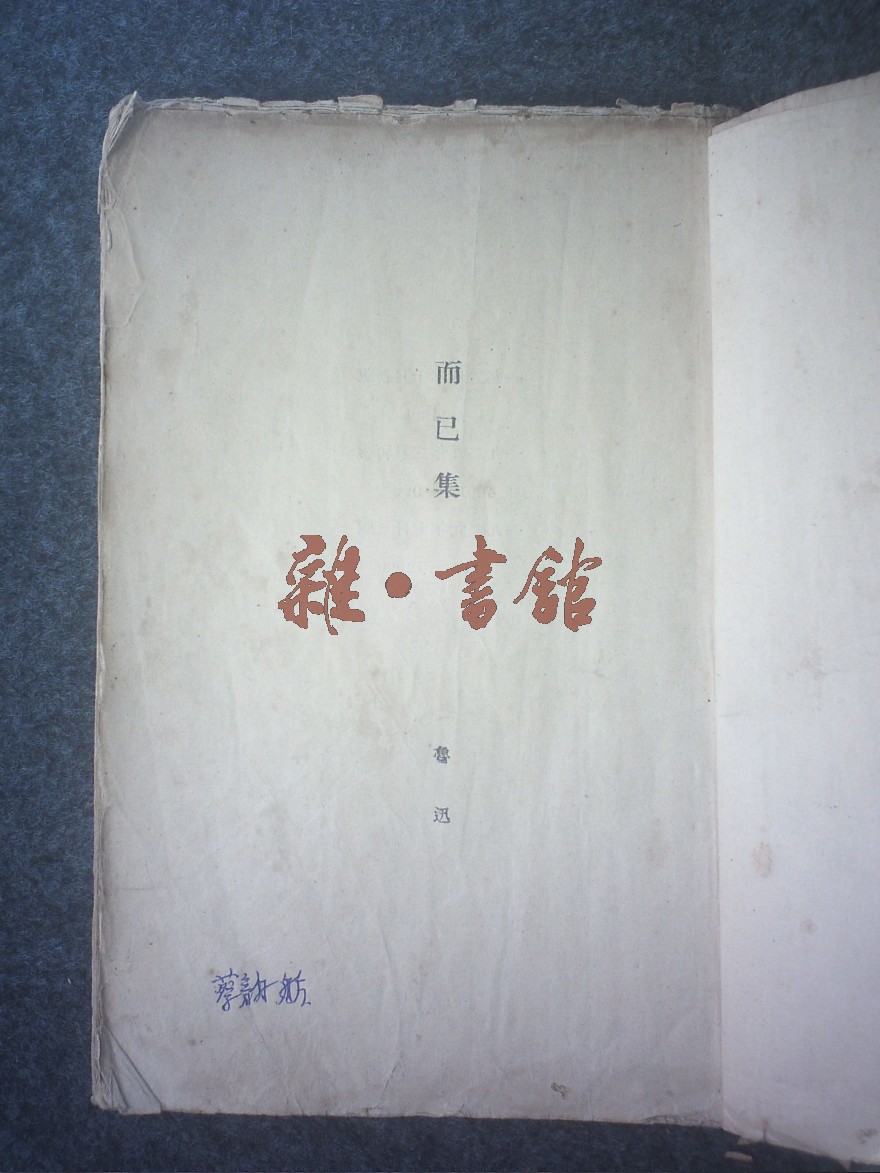 而已集
雜·書館
魯迅